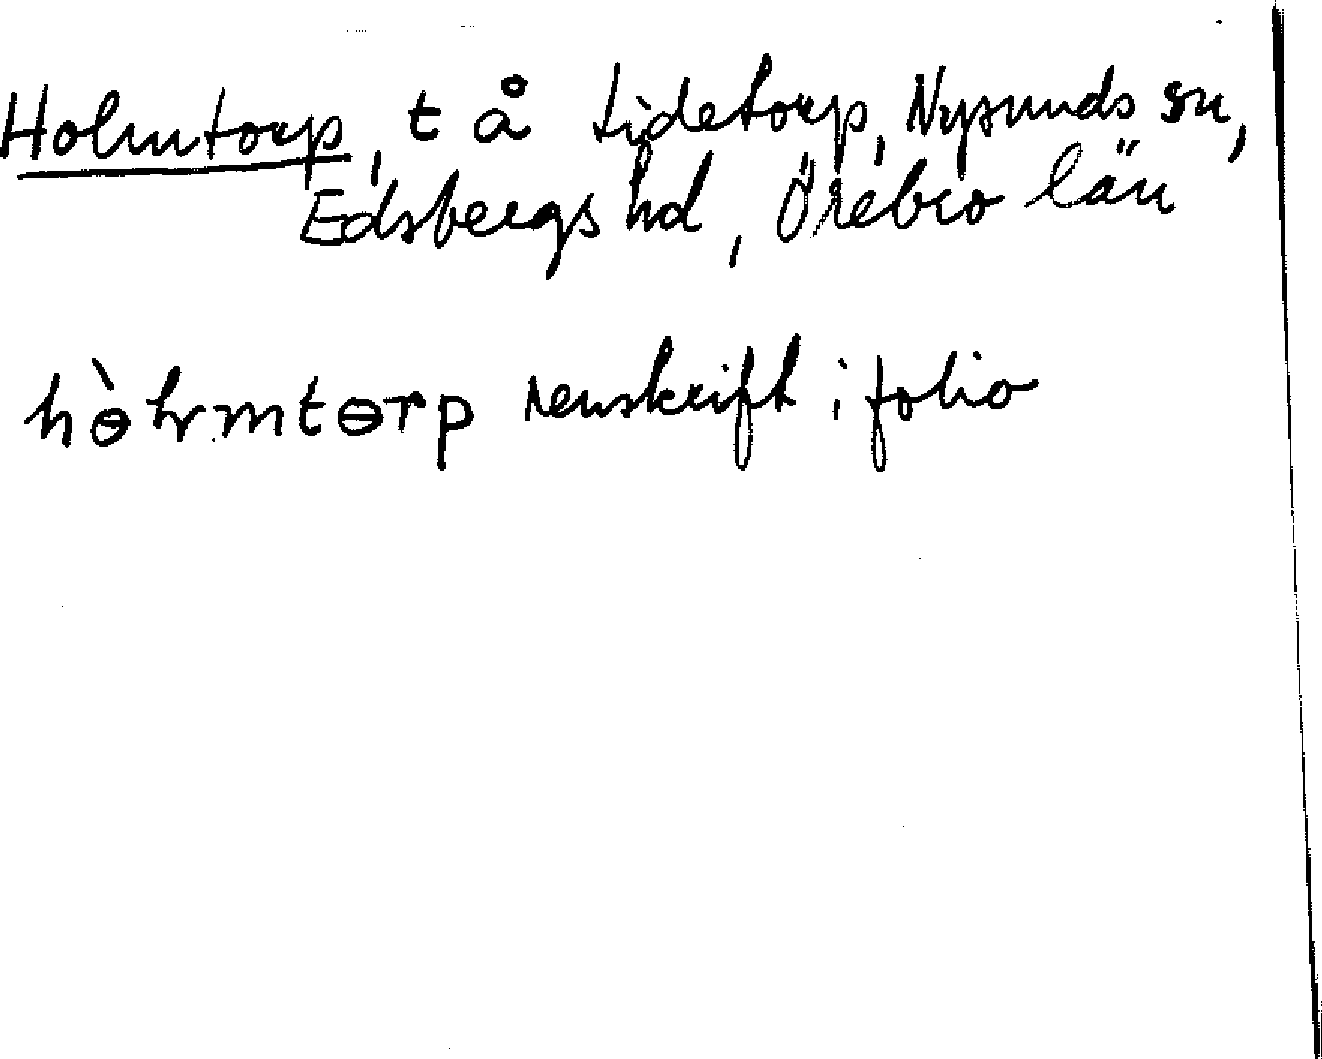 Holmtorp, t å Lidetorp, Nysunds sn,
Edsbergs hd, Örebro län
hɵ̀lrmtɵrp renskrift i folio